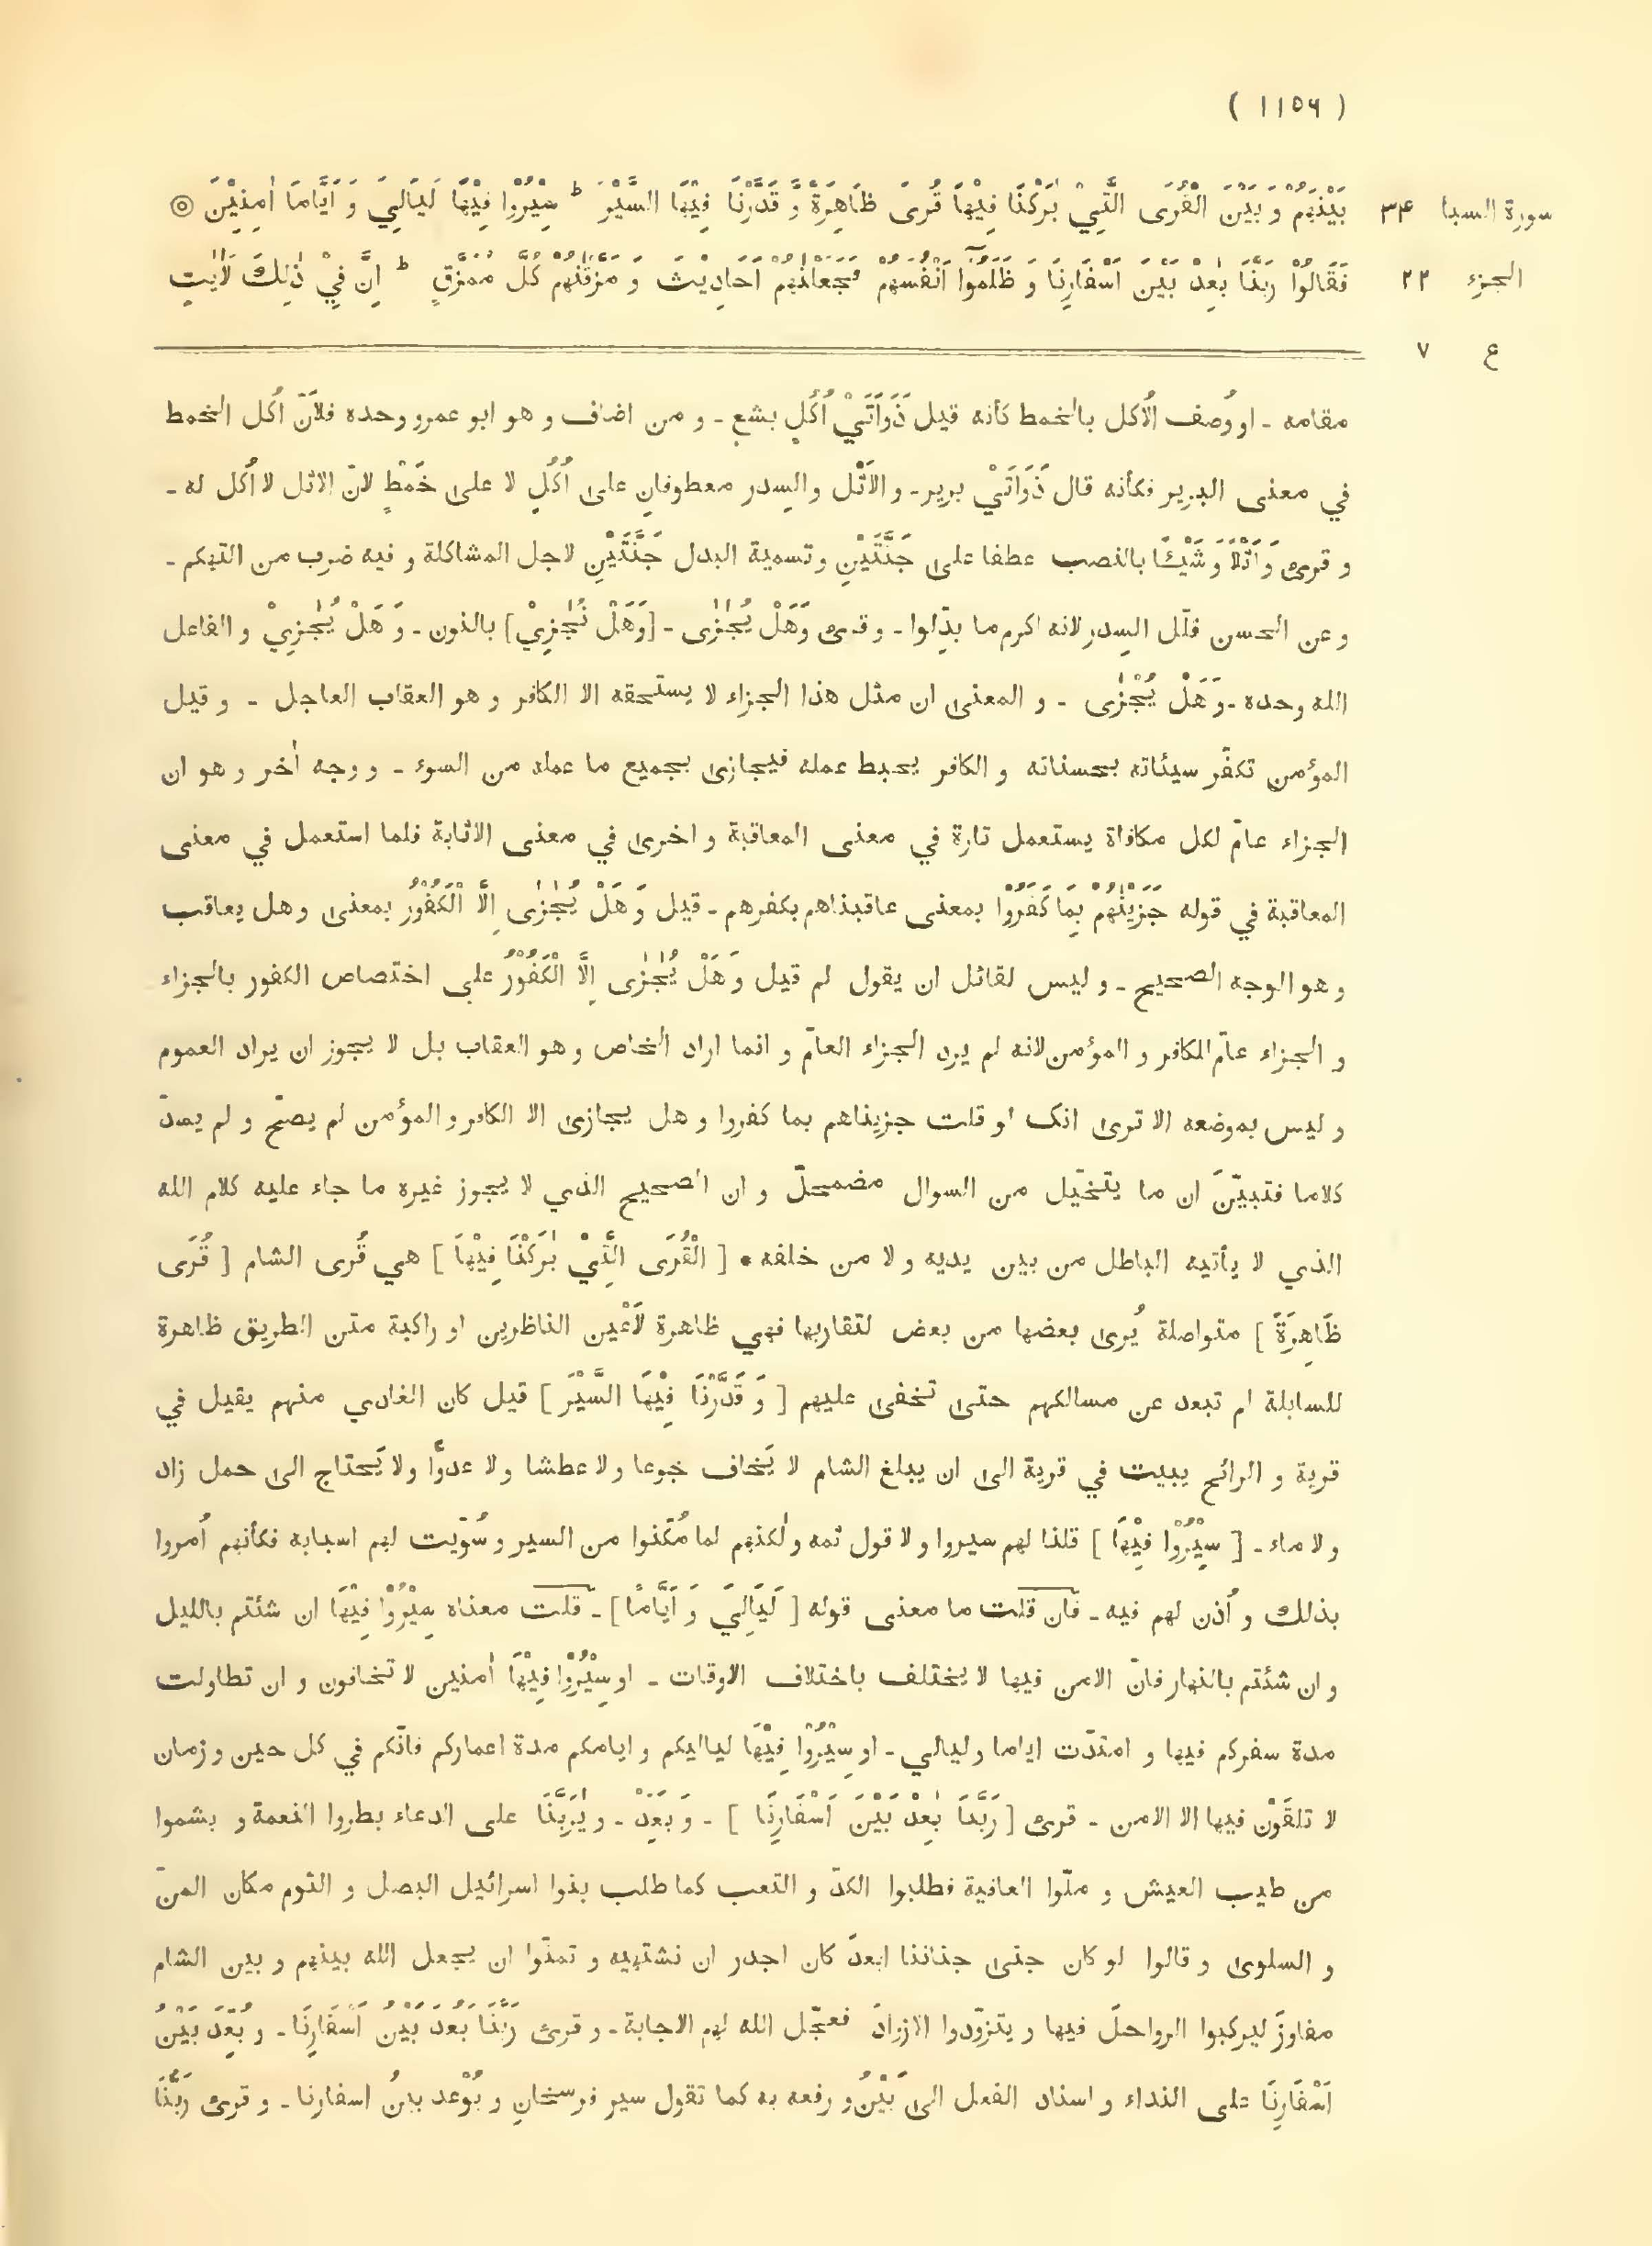 ( ١١٥٦ )
سورة السبا ٣٤ بَيْنَهُمْ وَ بَيْنَ الْقُرَى الَّتِيْ بٰرَكْنَا فِيْهَا قُرًى ظَاهِرَةً وَّ قَدَّرْنَا فِيْهَا السَّيْرَ ؕ سِيْرُوْا فِيْهَا لَيَالِيَ وَ اَيَّامًا اٰمِنِيْنَ ۞
الجزء ٢٢ فَقَالُوْا رَبَّنَا بٰعِدْ بَيْنَ اَسْفَارِنَا وَ ظَلَمُوْٓا اَنْفُسَهُمْ فَجَعَلْنٰهُمْ اَحَادِيْثَ وَ مَزَّقْنٰهُمْ كُلَّ مُمَزَّقٍ ؕ اِنَّ فِيْ ذٰلِكَ لَاٰيٰتٍ
ع ٧
مقامه ـ او وُصف الُاكل بالخمط كأنه قيل ذَوَاتَيْ اُكُلٍ بشعٍ ـ و من اضاف و هو ابو عمرو وحده فلاَنّ اُكل الخمط
في معنى البرير فكأنه قال ذَوَاتَيْ برير ـ و الاَثْل والسِدر معطوفانِ على اُكُلٍ لا على خَمْطٍ لانّ الاثل لا اُكل له ـ
و قرئ وَ اَثْلًا وَ شَيْئًا بالنصب عطفا على جَنَّتَيْنِ و تسمية البدل جَنَّتَيْنِ لاجل المشاكلة و فيه ضرب من التهكم ـ
و عن الحسن قلّل السِدر لانه اكرم ما بدِّلوا ـ و قرئ وَهَلْ يُجٰزٰى ـ [وَهَلْ نُجٰزِيْ] بالنون ـ وَ هَلْ يُجٰزِيْ و الفاعل
الله وحده ـ وَهَلْ يُجْزٰى ـ و المعنى ان مثل هذا الجزاء لا يستحقه الا الكافر و هو العقاب العاجل ـ و قيل
المؤمن تكفَّر سيئاته بحسناته و الكافر يحبط عمله فيجازى بجميع ما عمله من السوء ـ و وجه اٰخر و هو ان
الجزاء عامّ لكل مكافاة يستعمل تارة في معنى المعاقبة و اخرى في معنى الاثابة فلما استعمل في معنى
المعاقبة في قوله جَزَيْنٰهُمْ بِمَا كَفَرُوْا بمعنى عاقبناهم بكفرهم ـ قيل وَ هَلْ يُجٰزٰى اِلَّا الْكَفُوْرُ بمعنى و هل يعاقب
و هو الوجه الصحيح ـ و ليس لقائل ان يقول لم قيل وَ هَلْ يُجٰزٰى اِلَّا الْكَفُوْرُ على اختصاص الكفور بالجزاء
و الجزاء عامّ للكافر و المؤمن لانه لم يرد الجزاء العامّ و انما اراد الخاص و هو العقاب بل لا يجوز ان يراد العموم
و ليس بموضعه الا ترى انك لو قلت جزيناهم بما كفروا و هل يجازى الا الكافر و المؤمن لم يصحّ و لم يعدّ
كلاما فتبيّن ان ما يتخيّل من السوال مضمحلّ و ان الصحيح الذي لا يجوز غيره ما جاء عليه كلام الله
الذي لا يأتيه الباطل من بين يديه و لا من خلفه • [ الْقُرَى الَّتِيْ بٰرَكْنَا فِيْهَا ] هي قُرى الشام [ قُرًى
ظَاهِرَةً ] متواصلة يُرى بعضها من بعض لتقاربها فهي ظاهرة لاَعْين الناظرين او راكبة متن الطريق ظاهرة
للسابلة لم تبعد عن مسالكهم حتى تخفى عليهم [ وَ قَدَّرْنَا فِيْهَا السَّيْرَ ] قيل كان الغادي منهم يقيل في
قرية و الرائح يبيت في قرية الى ان يبلغ الشام لا يَخاف جوعا ولا عطشا ولا عدوًّا ولا يَحتاج الى حمل زاد
ولا ماء ـ [ سِيْرُوْا فِيْهَا ] قلنا لهم سيروا ولا قول ثمه ولٰكنهم لما مُكّنوا من السير و سُوّيت لهم اسبابه فكأنهم اُمروا
بذلك و اُذن لهم فيه ـ فان قلت ما معنى قوله [ لَيَالِيَ وَ اَيَّامًا ] ـ قلت معناه سِيْرُوْا فِيْهَا ان شئتم بالليل
و ان شئتم بالنهار فانّ الامن فيها لا يختلف باختلاف الاوقات ـ او سِيْرُوْا فِيْهَا اٰمنين لا تخافون و ان تطاولت
مدة سفركم فيها و امتدّت اياما و ليالي ـ او سِيْرُوْا فِيْهَا لياليكم و ايامكم مدة اعماركم فانّكم في كل حين و زمان
لا تلقَوْن فيها الا الامن ـ قرئ [ رَبَّنَا بٰعِدْ بَيْنَ اَسْفَارِنَا ] ـ وَ بَعِّدْ ـ و يٰرَبَّنَا على الدعاء بطروا النعمة و بشموا
من طيب العيش و ملّوا العافية فطلبوا الكدّ و التعب كما طلب بنوا اسرائيل البصل و الثوم مكان المنّ
و السلوى و قالوا لو كان جنى جناننا ابعدَ كان اجدر ان نشتهيه و تمنّوا ان يجعل الله بينهم و بين الشام
مفاوزَ ليركبوا الرواحلَ فيها و يتزوّدوا الازوادَ فعجّل الله لهم الاجابة ـ و قرئ رَبَّنَا بَعُدَ بَيْنُ اَسْفَارِنَا ـ و بُعِّدَ بَيْنُ
اَسْفَارِنَا على النداء و اسناد الفعل الى بَيْنُ و رفعه به كما تقول سير فرسخانِ و بُوْعد بينُ اسفارنا ـ و قرئ رَبُّنَا